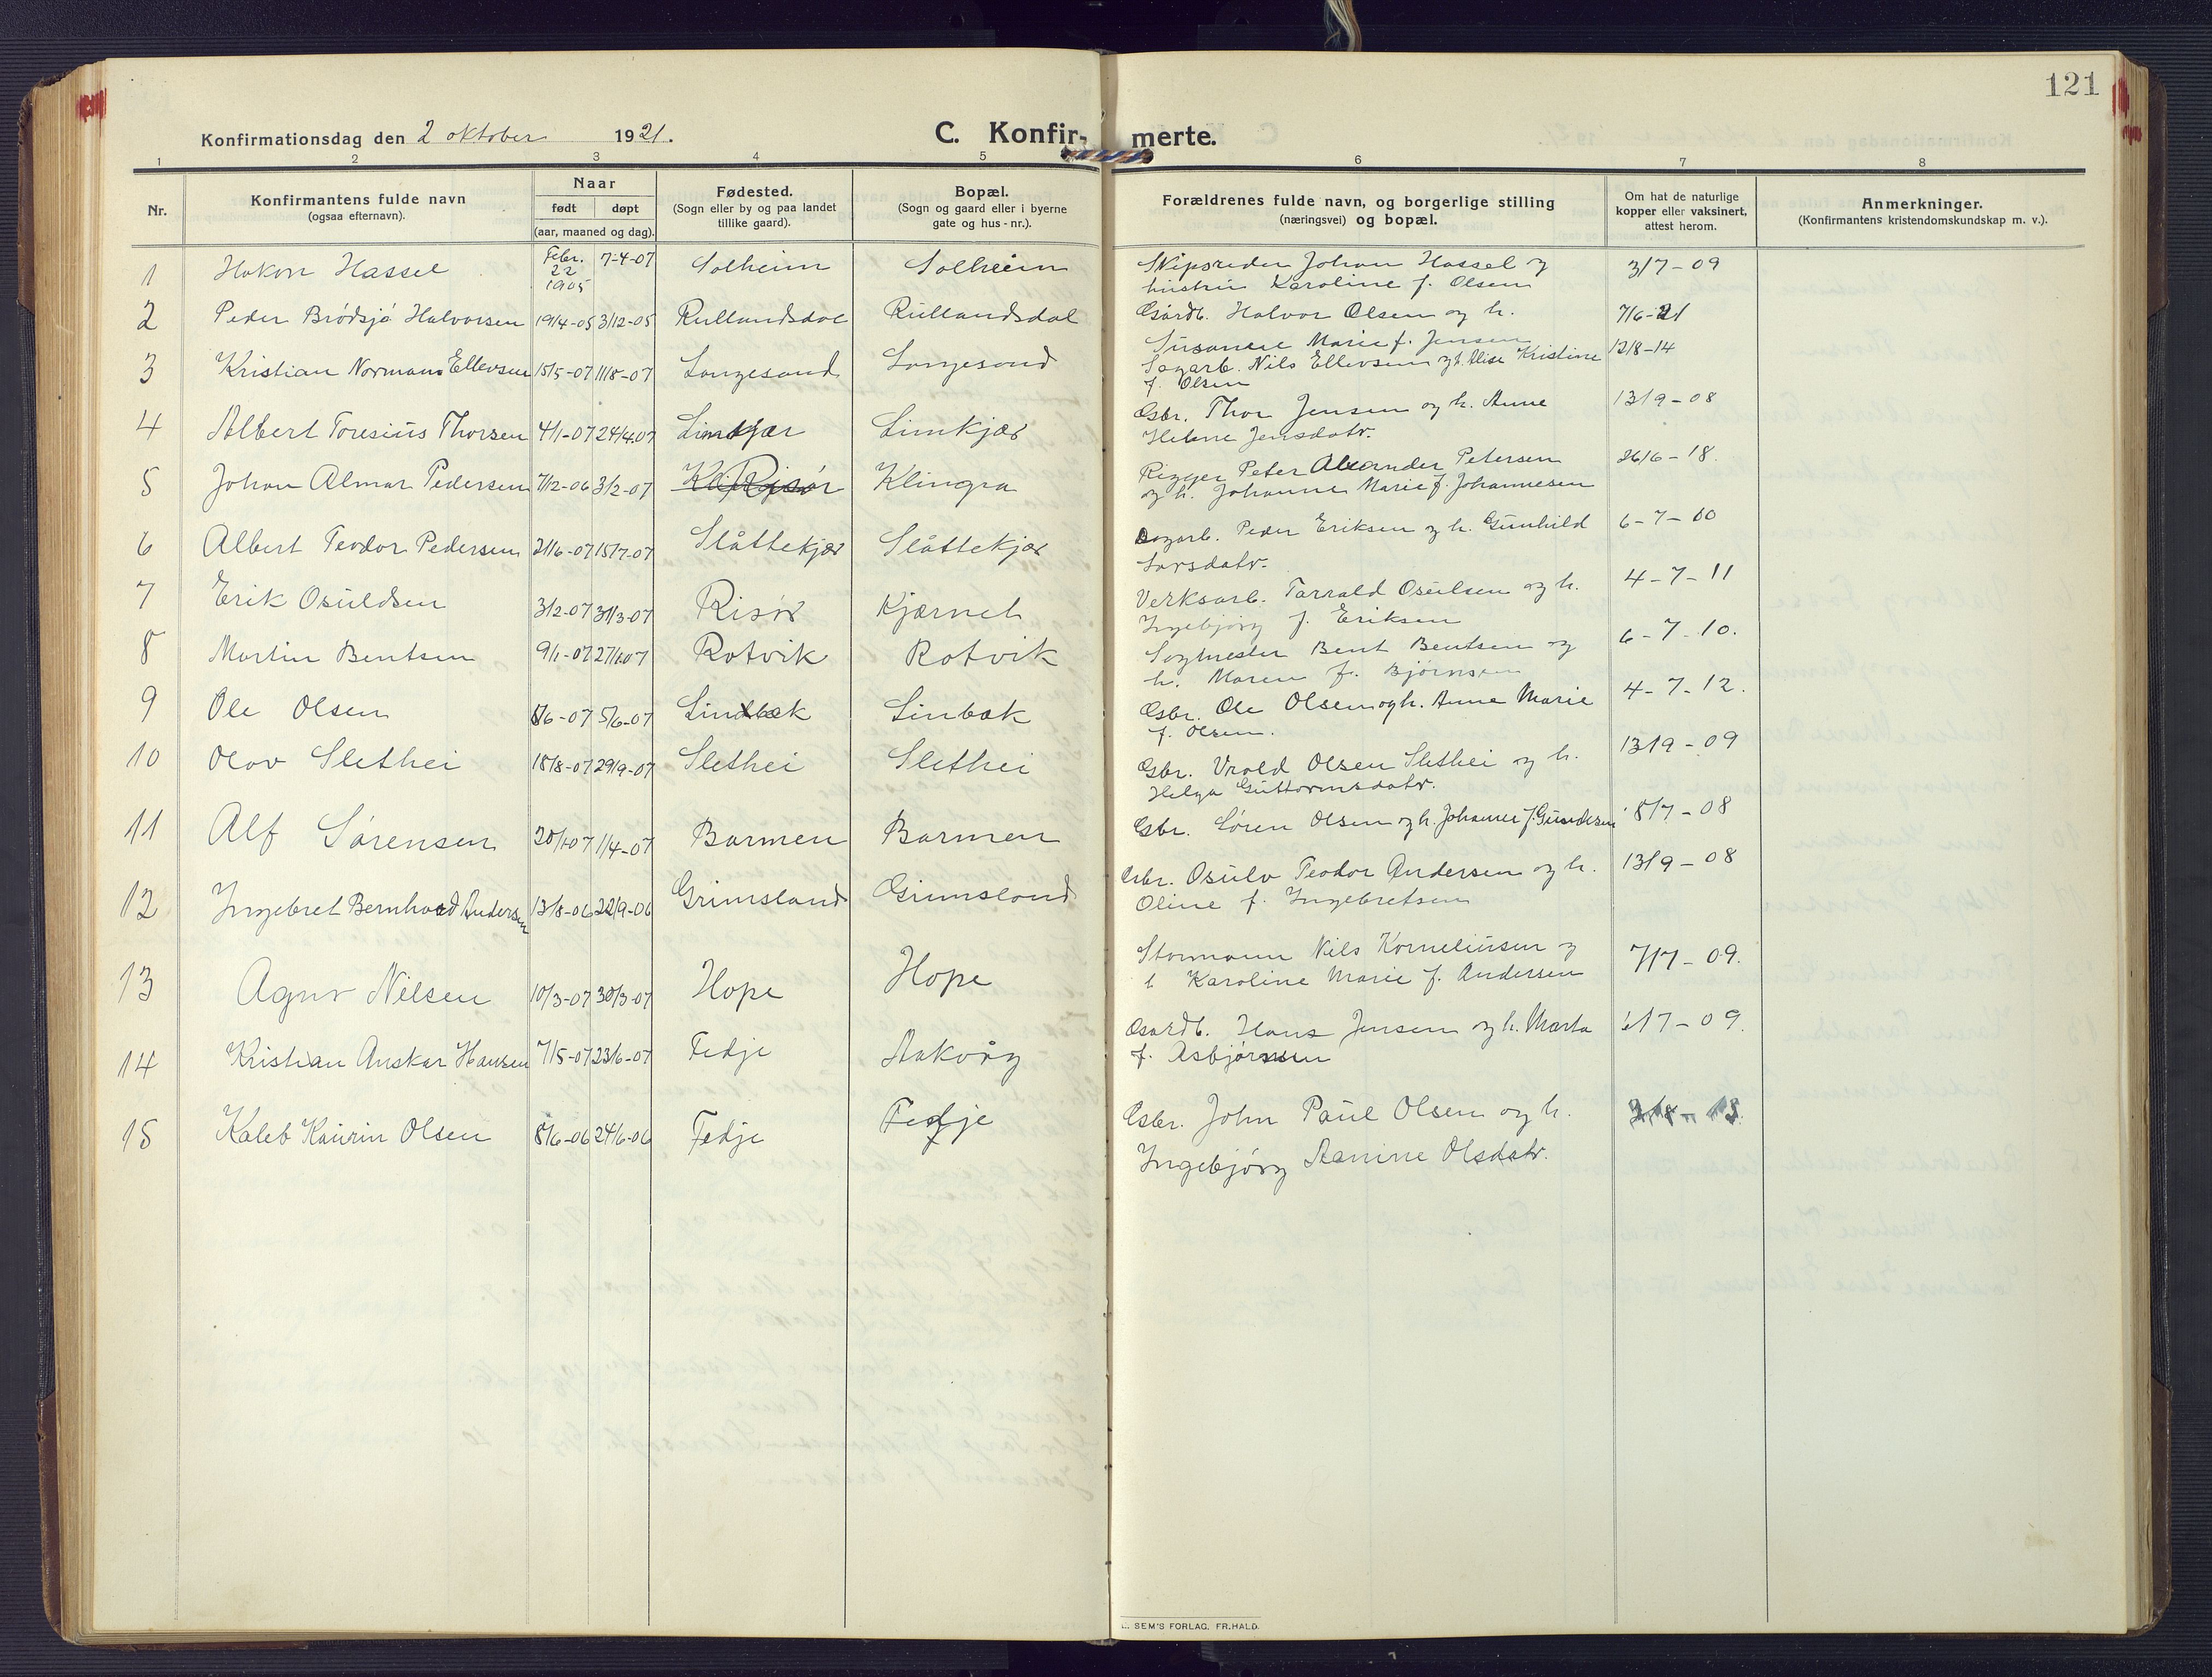 121
Konfirmationsdag den 2 oktober 1921.
C. Konfirmerte.
1 2 3 4 5 6 7 8
Nr. Konfirmantens fulde navn (ogsaa efternavn). Naar født døpt (aar, maaned og dag). Fødested. (Sogn eller by og paa landet tillike gaard). Bopæl. (Sogn og gaard eller i byerne gate og hus-nr.). Forældrenes fulde navn, og borgerlige stilling (næringsvei) og bopæl. Om hat de naturlige kopper eller vaksinert, attest herom. Anmerkninger. (Konfirmantens kristendomskundskap m. v.).
1 Hakon Hassel Febr. 22 1905 7-4-07 Solheim Solheim Skipsreder Johan Hassel og hustru Karoline f. Olsen 3/7-09
2 Peder Brødsjø Halvorsen 19/4-05 3/12-05 Rullandsdal Rullandsdal Gårdb. Halvor Olsen og h. Susanne Marie f. Jensen 7/6-21
3 Kristian Normann Ellevsen 15/5-07 11/8-07 Songesand Songesand Sagarb. Nils Ellevsen og h. Elise Kristine f. Olsen 12/8-14
4 Albert Toresius Thorsen 4/1-07 24/4.07 Limkjær Limkjær Gbr. Thor Jensen og h. Anne Helene Jensdatr. 13/9-08
5 Johan Almar Pedersen 7/12-06 3/2-07 Risør Klingra Rigger Peter Alexander Petersen og h. Johanne Marie f. Johannesen 26/6-18.
6 Albert Teodor Pedersen 21/6-07 15/7-07 Slåttekjær Slåttekjær Sagarb. Peder Eriksen og h. Gunhild Larsdatr. 6-7-10
7 Erik Osuldsen 3/2-07 31/3-07 Risør Kjærnet Verksarb. Tarrald Osulsen og h. Ingebjørg f. Eriksen 4-7-11
8 Martin Bentsen 9/1-07 27/1.07 Rotvik Rotvik Sagmester Bent Bentsen og h. Maren f. Bjørnsen 6-7-10.
9 Ole Olsen 5/6-07 Linbæk Linbæk Gbr. Ole Olsen og h. Anne Marie f. Olsen. 4-7-12.
10 Olav Slethei 15/8-07 29/9-07 Slethei Slethei Gbr. Vrold Olsen Slethei og h. Helga Guttormsdatr. 13/9-09
11 Alf Sørensen 20/1-07 1/4-07 Barmen Barmen Gbr. Søren Olsen og h. Johanne f. Gundersen 8/7-08
12 Ingebret Bernhard Andersen 13/8-06 22/9-06 Grimsland Grimsland Gbr. Osulv Teodor Andersen og h. Oline f. Ingebretsen 13/9-08
13 Agnar Nilsen 10/3-07 30/3-07 Hope Hope Stormann Nils Korneliussen og h Karoline Marie f. Andersen 7/7-09.
14 Kristian Anskar Hansen 7/5-07 23/6-07 Fedje Aakvåg Gardb. Hans Jensen og h. Marta f. Asbjørnsen 6/7-09.
15 Kaleb Kaurin Olsen 8/6-06 24/6-06 Fedje Fedje Gbr. John Paul Olsen og h. Ingebjørg Aanine Olsdatr.
SEM'S FORLAG. FR.HALD.